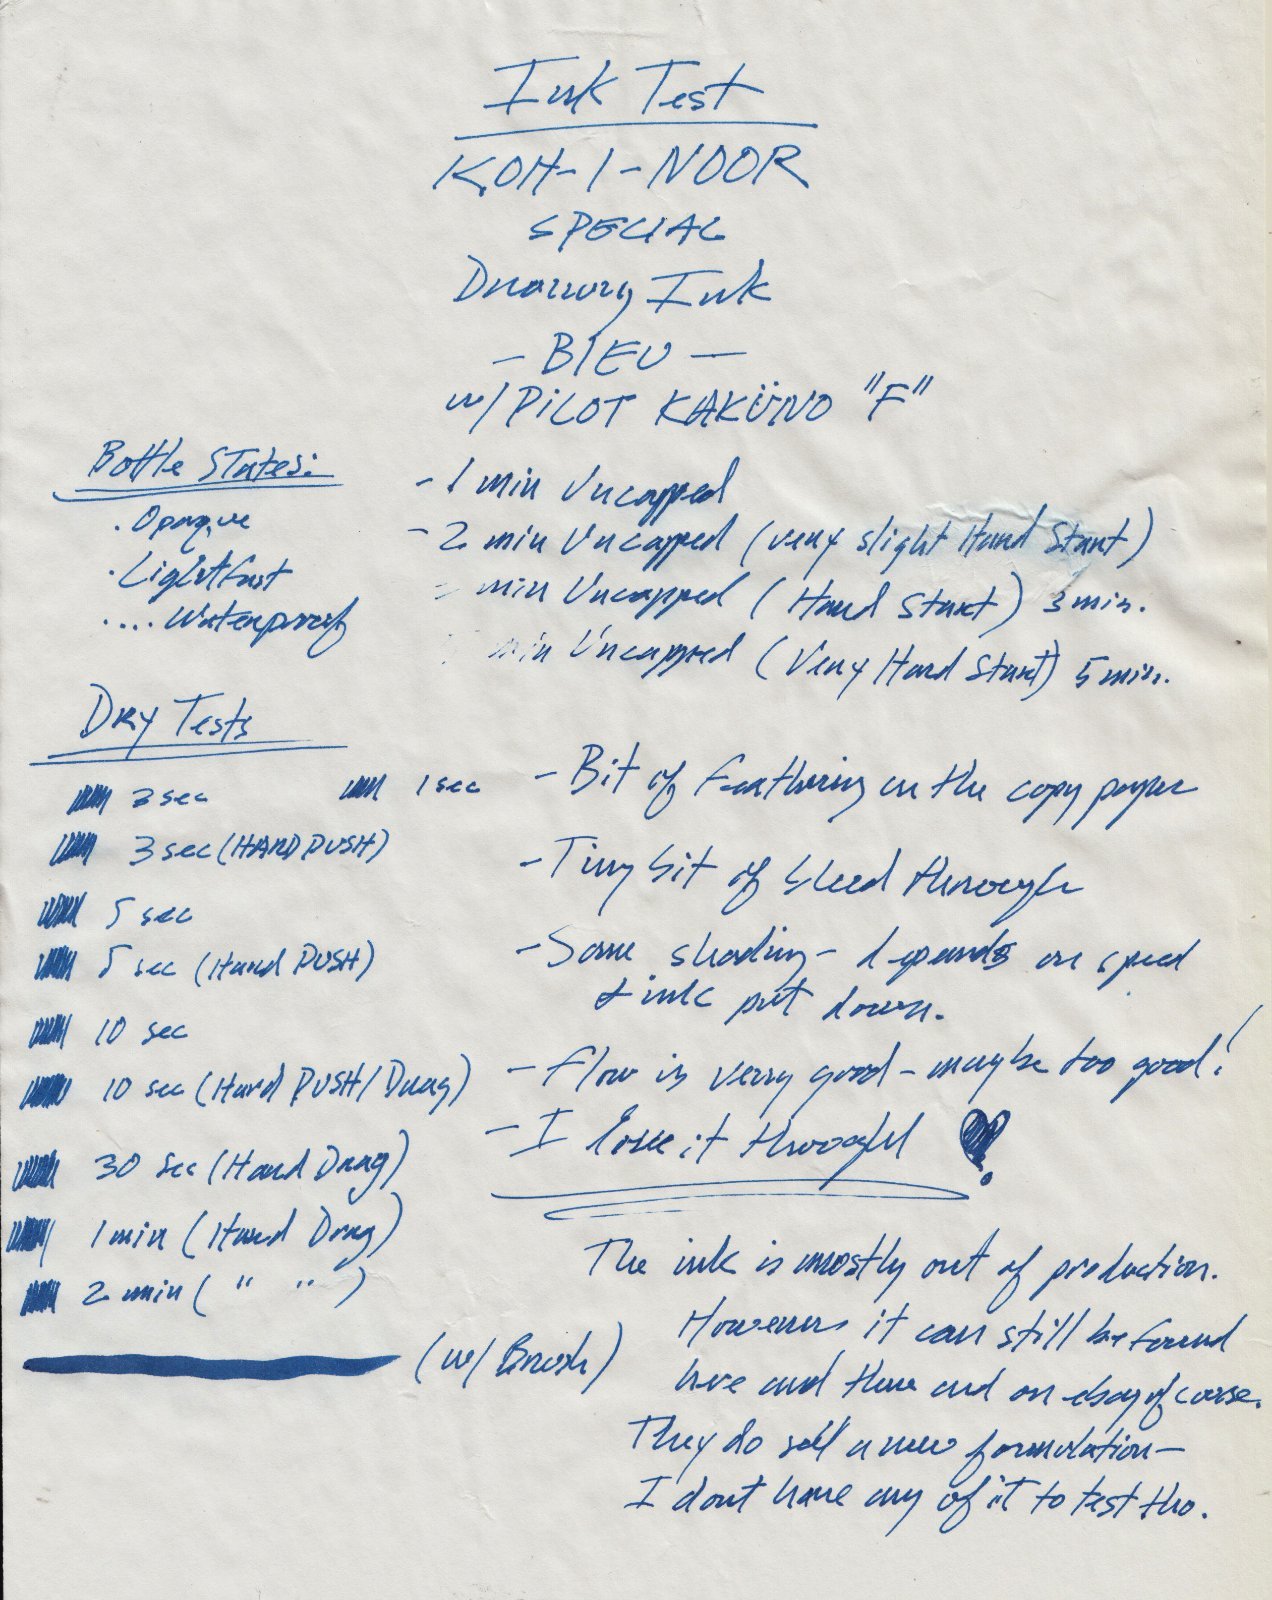 Ink Test
KOH-I-NOOR
SPECIAL
Drawing Ink
- BLEU -
w/ PILOT KAKÜNO "F"
Bottle States:
. Opaque
. Lightfast
.... Waterproof
- 1 min Uncapped
- 2 min Uncapped (very slight Hard Start)
- min Uncapped (Hard Start) 3 min.
min Uncapped (Very Hard Start) 5 min.
Dry Tests
2 sec
1 sec
3 sec (HARD PUSH)
5 sec
5 sec (Hard PUSH)
10 sec
10 sec (Hard PUSH/Drag)
30 sec (Hard Drag)
1 min (Hard Drag)
2 min ( " " )
(w/ Brush)
- Bit of feathering on the copy paper
- Tiny bit of bleed through
- Some shading - depends on speed
& ink put down.
- Flow is very good - maybe too good!
- I love it though
The ink is mostly out of production.
However it can still be found
here and there and on ebay of course.
They do sell a new formulation—
I dont have any of it to test tho.